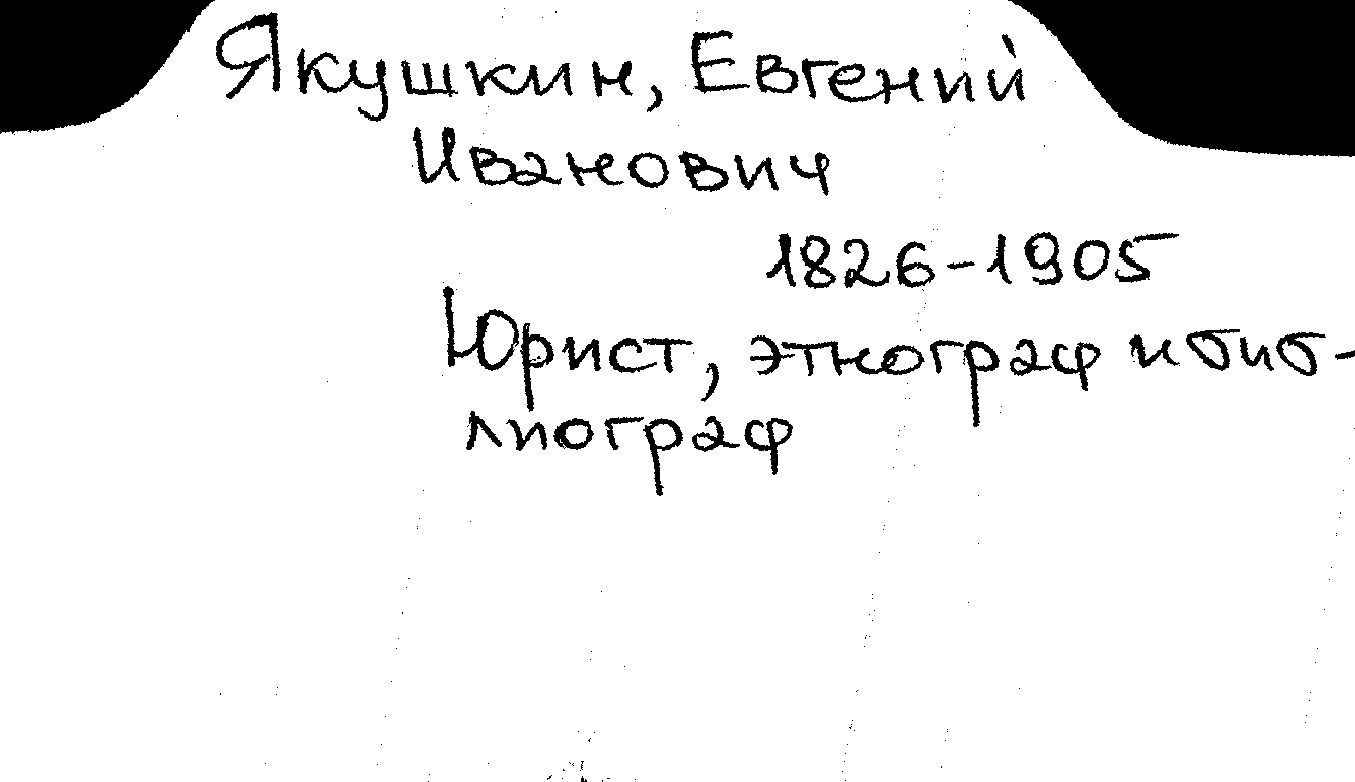 Якушкин, Евгений
Иванович
1826-1905
Юрист, этнограф и биб-
лиограф